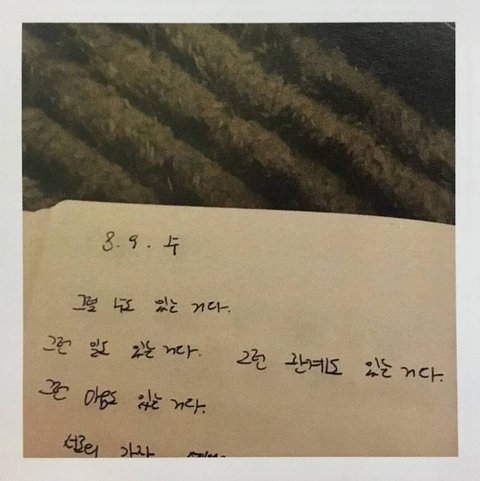 3. 9. 수
그럴 수도 있는 거다.
그런 일도 있는 거다. 그런 관계도 있는 거다.
그런 마음도 있는 거다.
서로의 가장